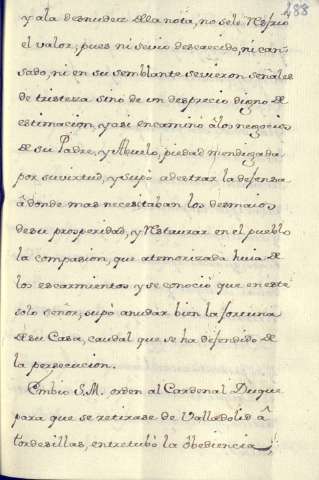 488
y ala desnudez della nota, no sele Resfrió
el valor; pues ni se vio descaecido, ni can-
sado, ni en su semblante se vieron señales
de tristeza sino de un desprecio digno de
estimacion, y asi encaminó â los negocios
de su Padre, y Abuelo, piedad mendigada
por su virtud, y supo adestrar la defensa
â donde mas necesitaban los desmaios
de su prosperidad, y Restaurar en el pueblo
la compasion, que atemorizada huia de
los escarmientos y se conoció que en este
solo señor, supo anudar bien la fortuna
de su Casa, caudal que se ha defendido de
la persecucion.
Embio S.M. orden al Cardenal Duque
para que se retirase de Valladolid â
tordesillas, entretubó la obediencia,